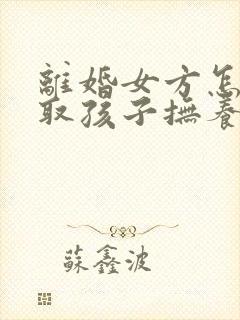 離婚女方怎
取孩子撫養
蘇鑫波